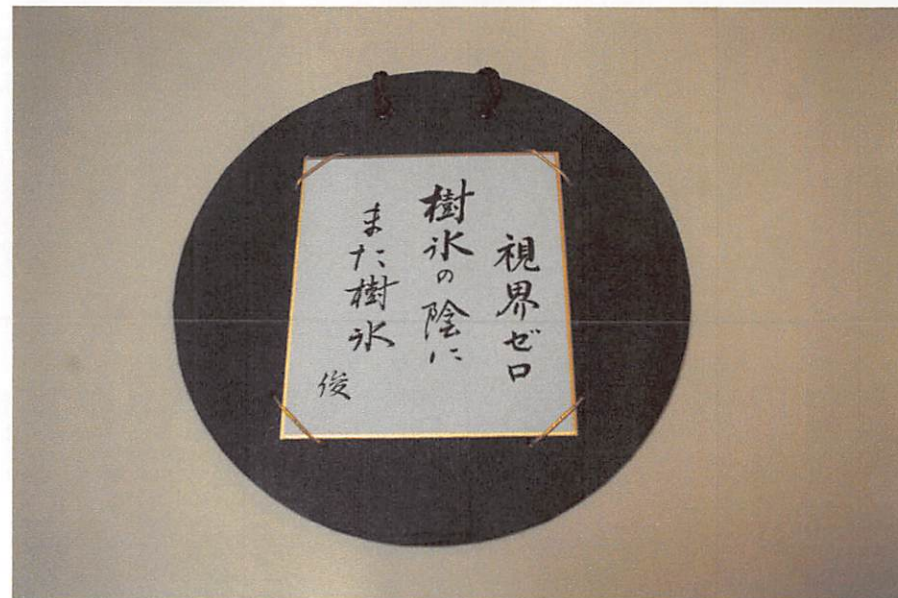 視界ゼロ
樹氷の陰に
また樹氷
俊